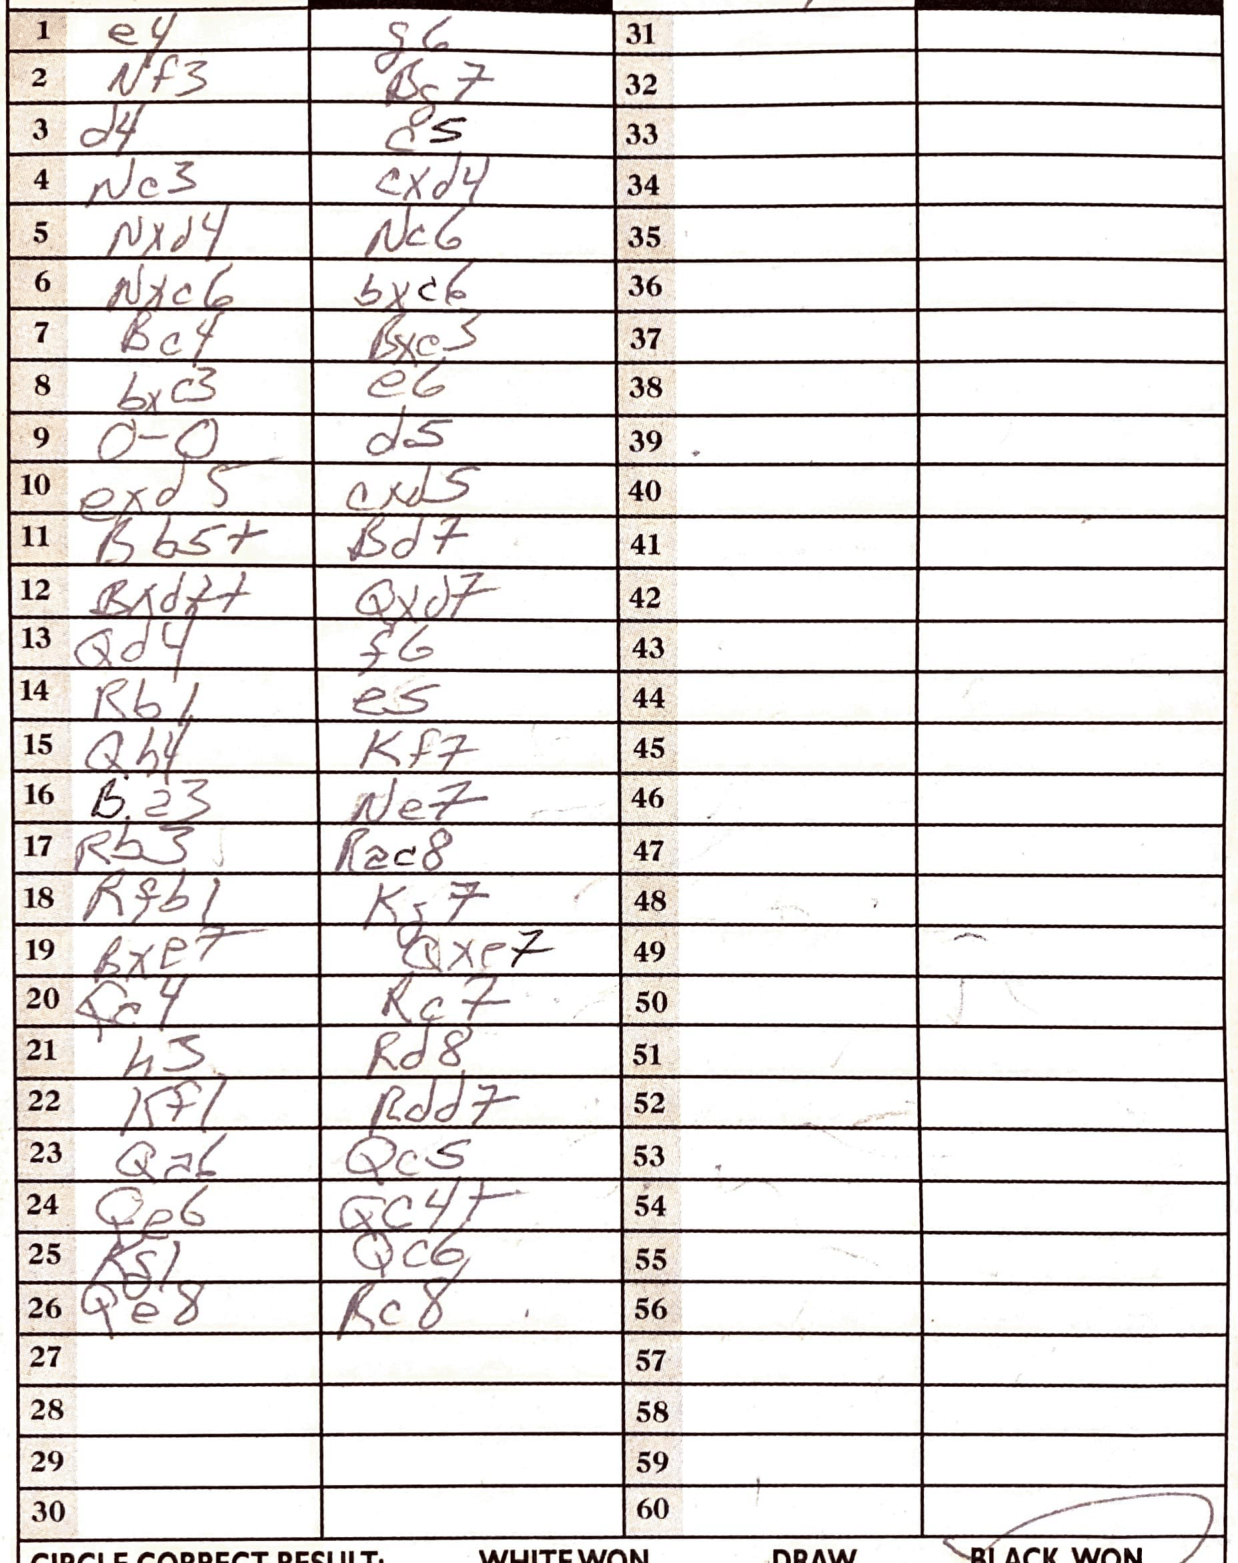 1 e4 g6 31
2 Nf3 Bg7 32
3 d4 c5 33
4 Nc3 cxd4 34
5 Nxd4 Nc6 35
6 Nxc6 bxc6 36
7 Bc4 Bxc3 37
8 bxc3 e6 38
9 O-O d5 39
10 exd5 cxd5 40
11 Bb5+ Bd7 41
12 Bxd7+ Qxd7 42
13 Qd4 f6 43
14 Rb1 e5 44
15 Qh4 Kf7 45
16 Ba3 Ne7 46
17 Rb3 Rac8 47
18 Rfb1 Kg7 48
19 Bxe7 Qxe7 49
20 Qc4 Rc7 50
21 h3 Rd8 51
22 Kf1 Rdd7 52
23 Qa6 Qc5 53
24 Qe6 Qc4+ 54
25 Kg1 Qc6 55
26 Qe8 Rc8 56
27 57
28 58
29 59
30 60
CIRCLE CORRECT RESULT: WHITE WON DRAW BLACK WON